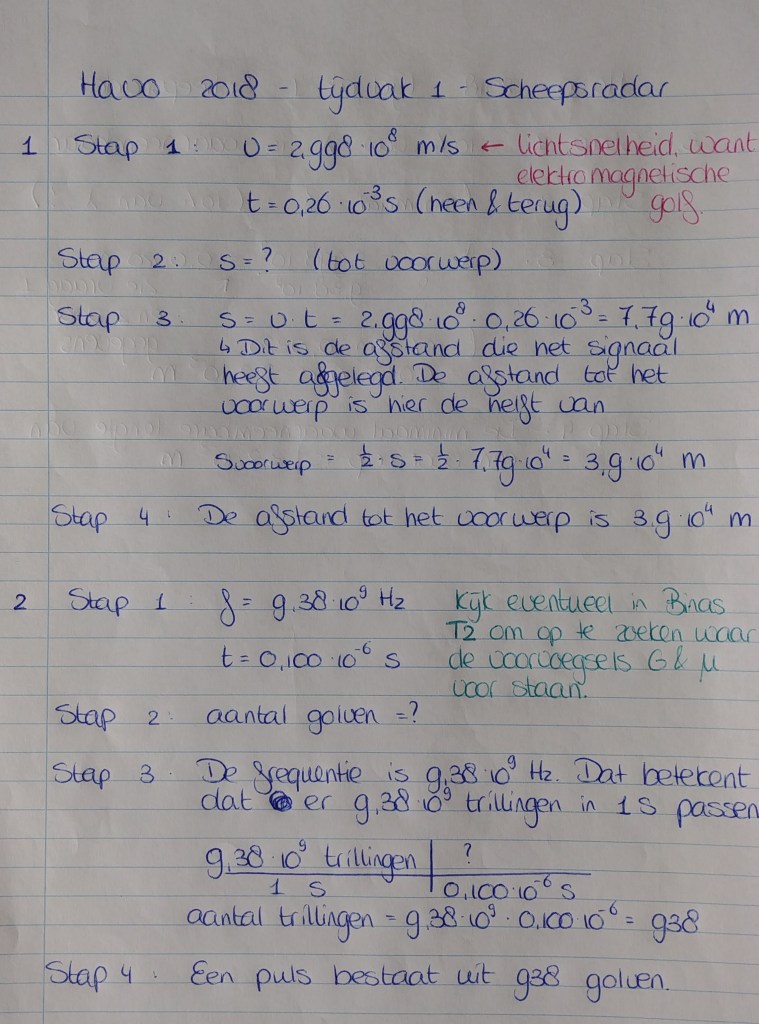 Havo 2018 - tijdvak 1 - Scheepsradar
1 Stap 1: v = 2,998·10⁸ m/s ← lichtsnelheid, want
elektromagnetische
t = 0,26·10⁻³ s (heen & terug) golf.
Stap 2: s = ? (tot voorwerp)
Stap 3. s = v·t = 2,998·10⁸·0,26·10⁻³ = 7,79·10⁴ m
↳ Dit is de afstand die het signaal
heeft afgelegd. De afstand tot het
voorwerp is hier de helft van
Svoorwerp = ½·s = ½·7,79·10⁴ = 3,9·10⁴ m
Stap 4: De afstand tot het voorwerp is 3,9·10⁴ m
2 Stap 1: f = 9,38·10⁹ Hz Kijk eventueel in Binas
T2 om op te zoeken waar
t = 0,100·10⁻⁶ s de voorvoegsels G & µ
voor staan.
Stap 2: aantal golven = ?
Stap 3. De frequentie is 9,38·10⁹ Hz. Dat betekent
dat er 9,38·10⁹ trillingen in 1 s passen
9,38·10⁹ trillingen | ?
1 s | 0,100·10⁻⁶ s
aantal trillingen = 9,38·10⁹·0,100·10⁻⁶ = 938
Stap 4: Een puls bestaat uit 938 golven.